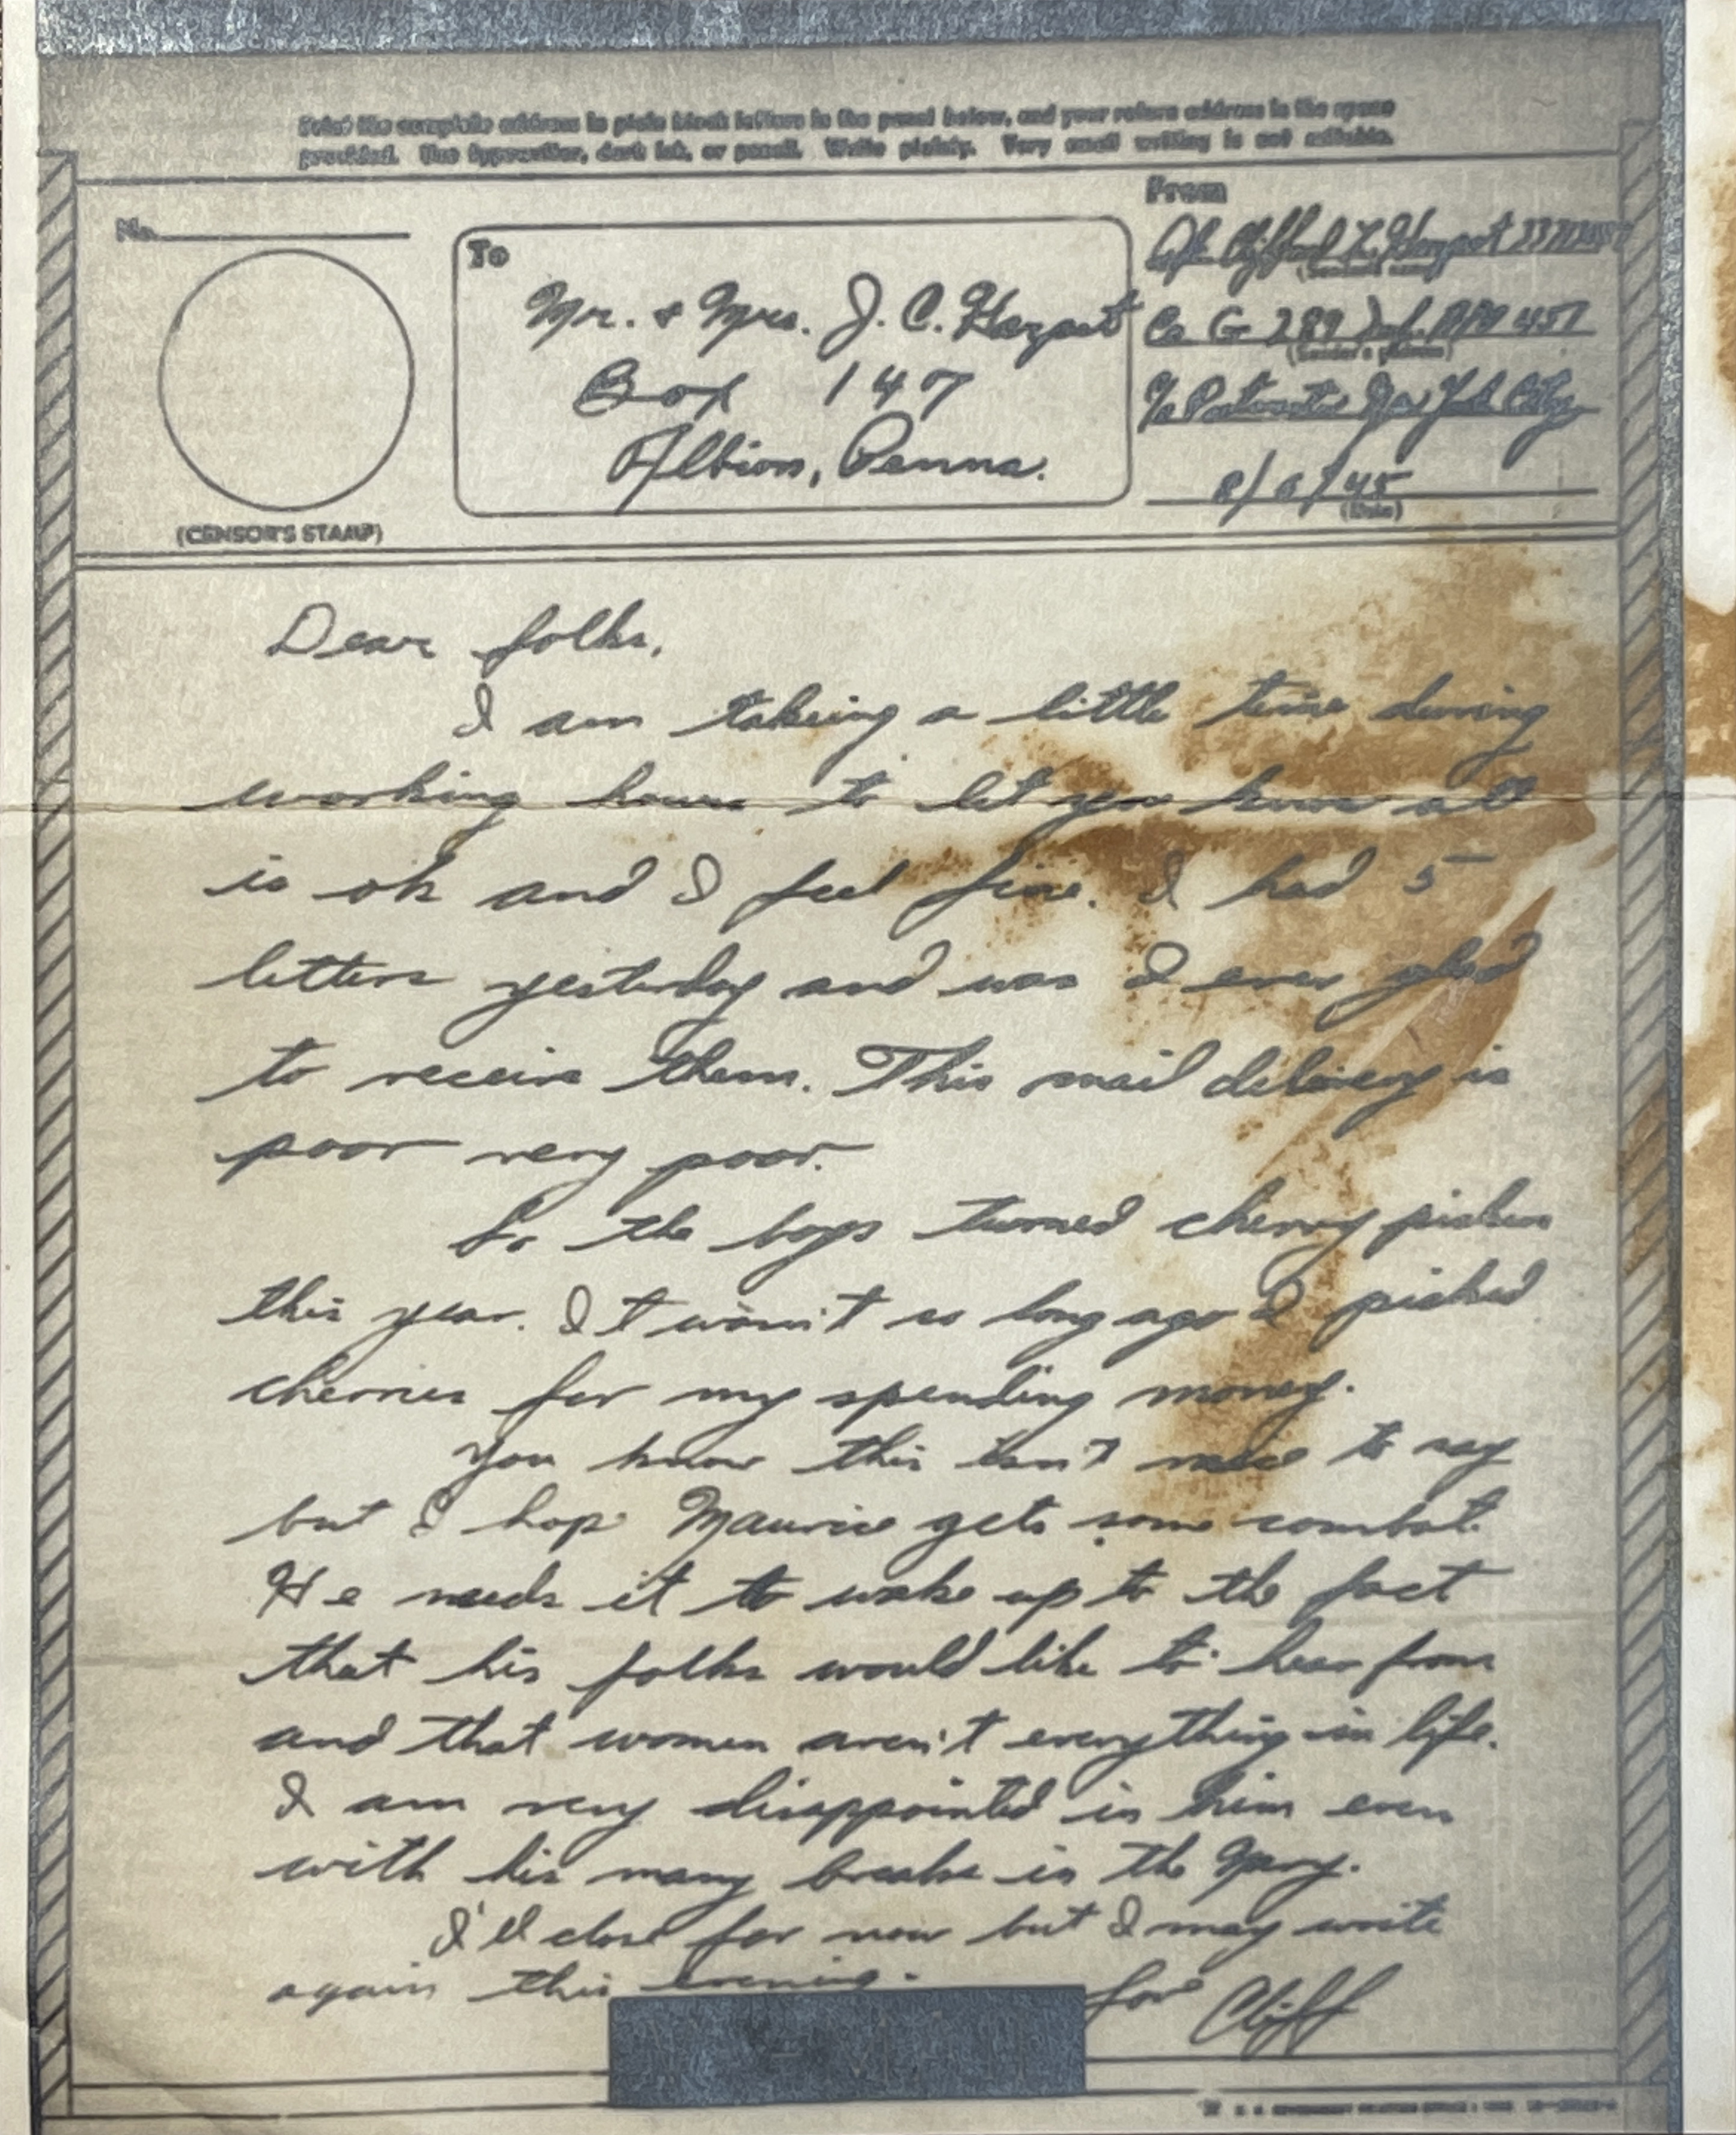 Print the complete address in plain block letters in the panel below, and your return address in the space
provided. Use typewriter, dark ink, or pencil. Write plainly. Very small writing is not suitable.
No.
(CENSOR'S STAMP)
To
Mr. & Mrs. J. C. Hazpat
Box 147
Albion, Penna.
From
Clifford L.
(Sender's name)
Co G 289 Inf. APO 451
(Sender's address)
c/o Postmaster New York City
8/6/45
(Date)
Dear folks,
I am takeing a little time during
working hours to let you know all
is ok and I feel fine. I had 5
letters yesterday and was I ever glad
to receive them. This mail delivery is
poor very poor.
So the boys turned cherry pickers
this year. It wasn't so long ago I picked
cherries for my spending money.
You know this isn't nice to say
but I hope Maurice gets some combat.
He needs it to wake up to the fact
that his folks would like to hear from
and that women aren't everything in life.
I am very disappointed in him even
with his many breaks in the Navy.
I'll close for now but I may write
again this evening.
Love Cliff